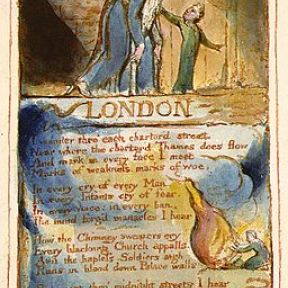 LONDON
I wander thro each charter'd street,
Near where the charter'd Thames does flow
And mark in every face I meet
Marks of weakness, marks of woe.
In every cry of every Man,
In every Infants cry of fear,
In every voice: in every ban,
The mind-forg'd manacles I hear
How the Chimney-sweepers cry
Every blackning Church appalls,
And the hapless Soldiers sigh
Runs in blood down Palace walls
midnight streets I hear